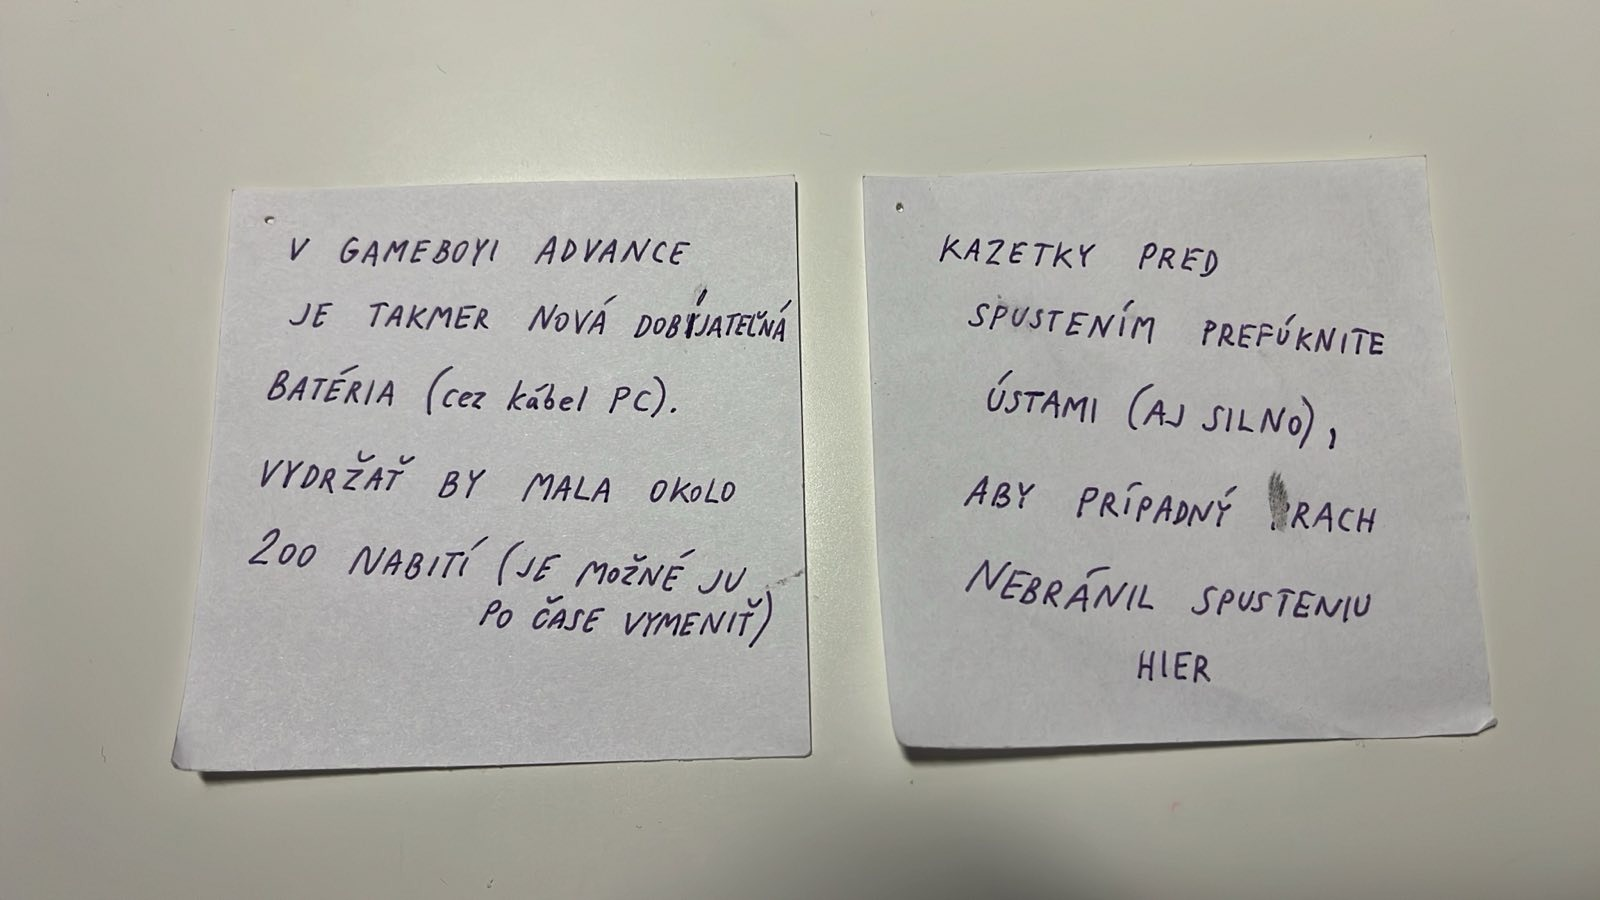 V GAMEBOYI ADVANCE
JE TAKMER NOVÁ DOBÍJATEĽNÁ
BATÉRIA (cez kábel PC).
VYDRŽAŤ BY MALA OKOLO
200 NABITÍ (JE MOŽNÉ JU
PO ČASE VYMENIŤ)
KAZETKY PRED
SPUSTENÍM PREFÚKNITE
ÚSTAMI (AJ SILNO),
ABY PRÍPADNÝ PRACH
NEBRÁNIL SPUSTENIU
HIER